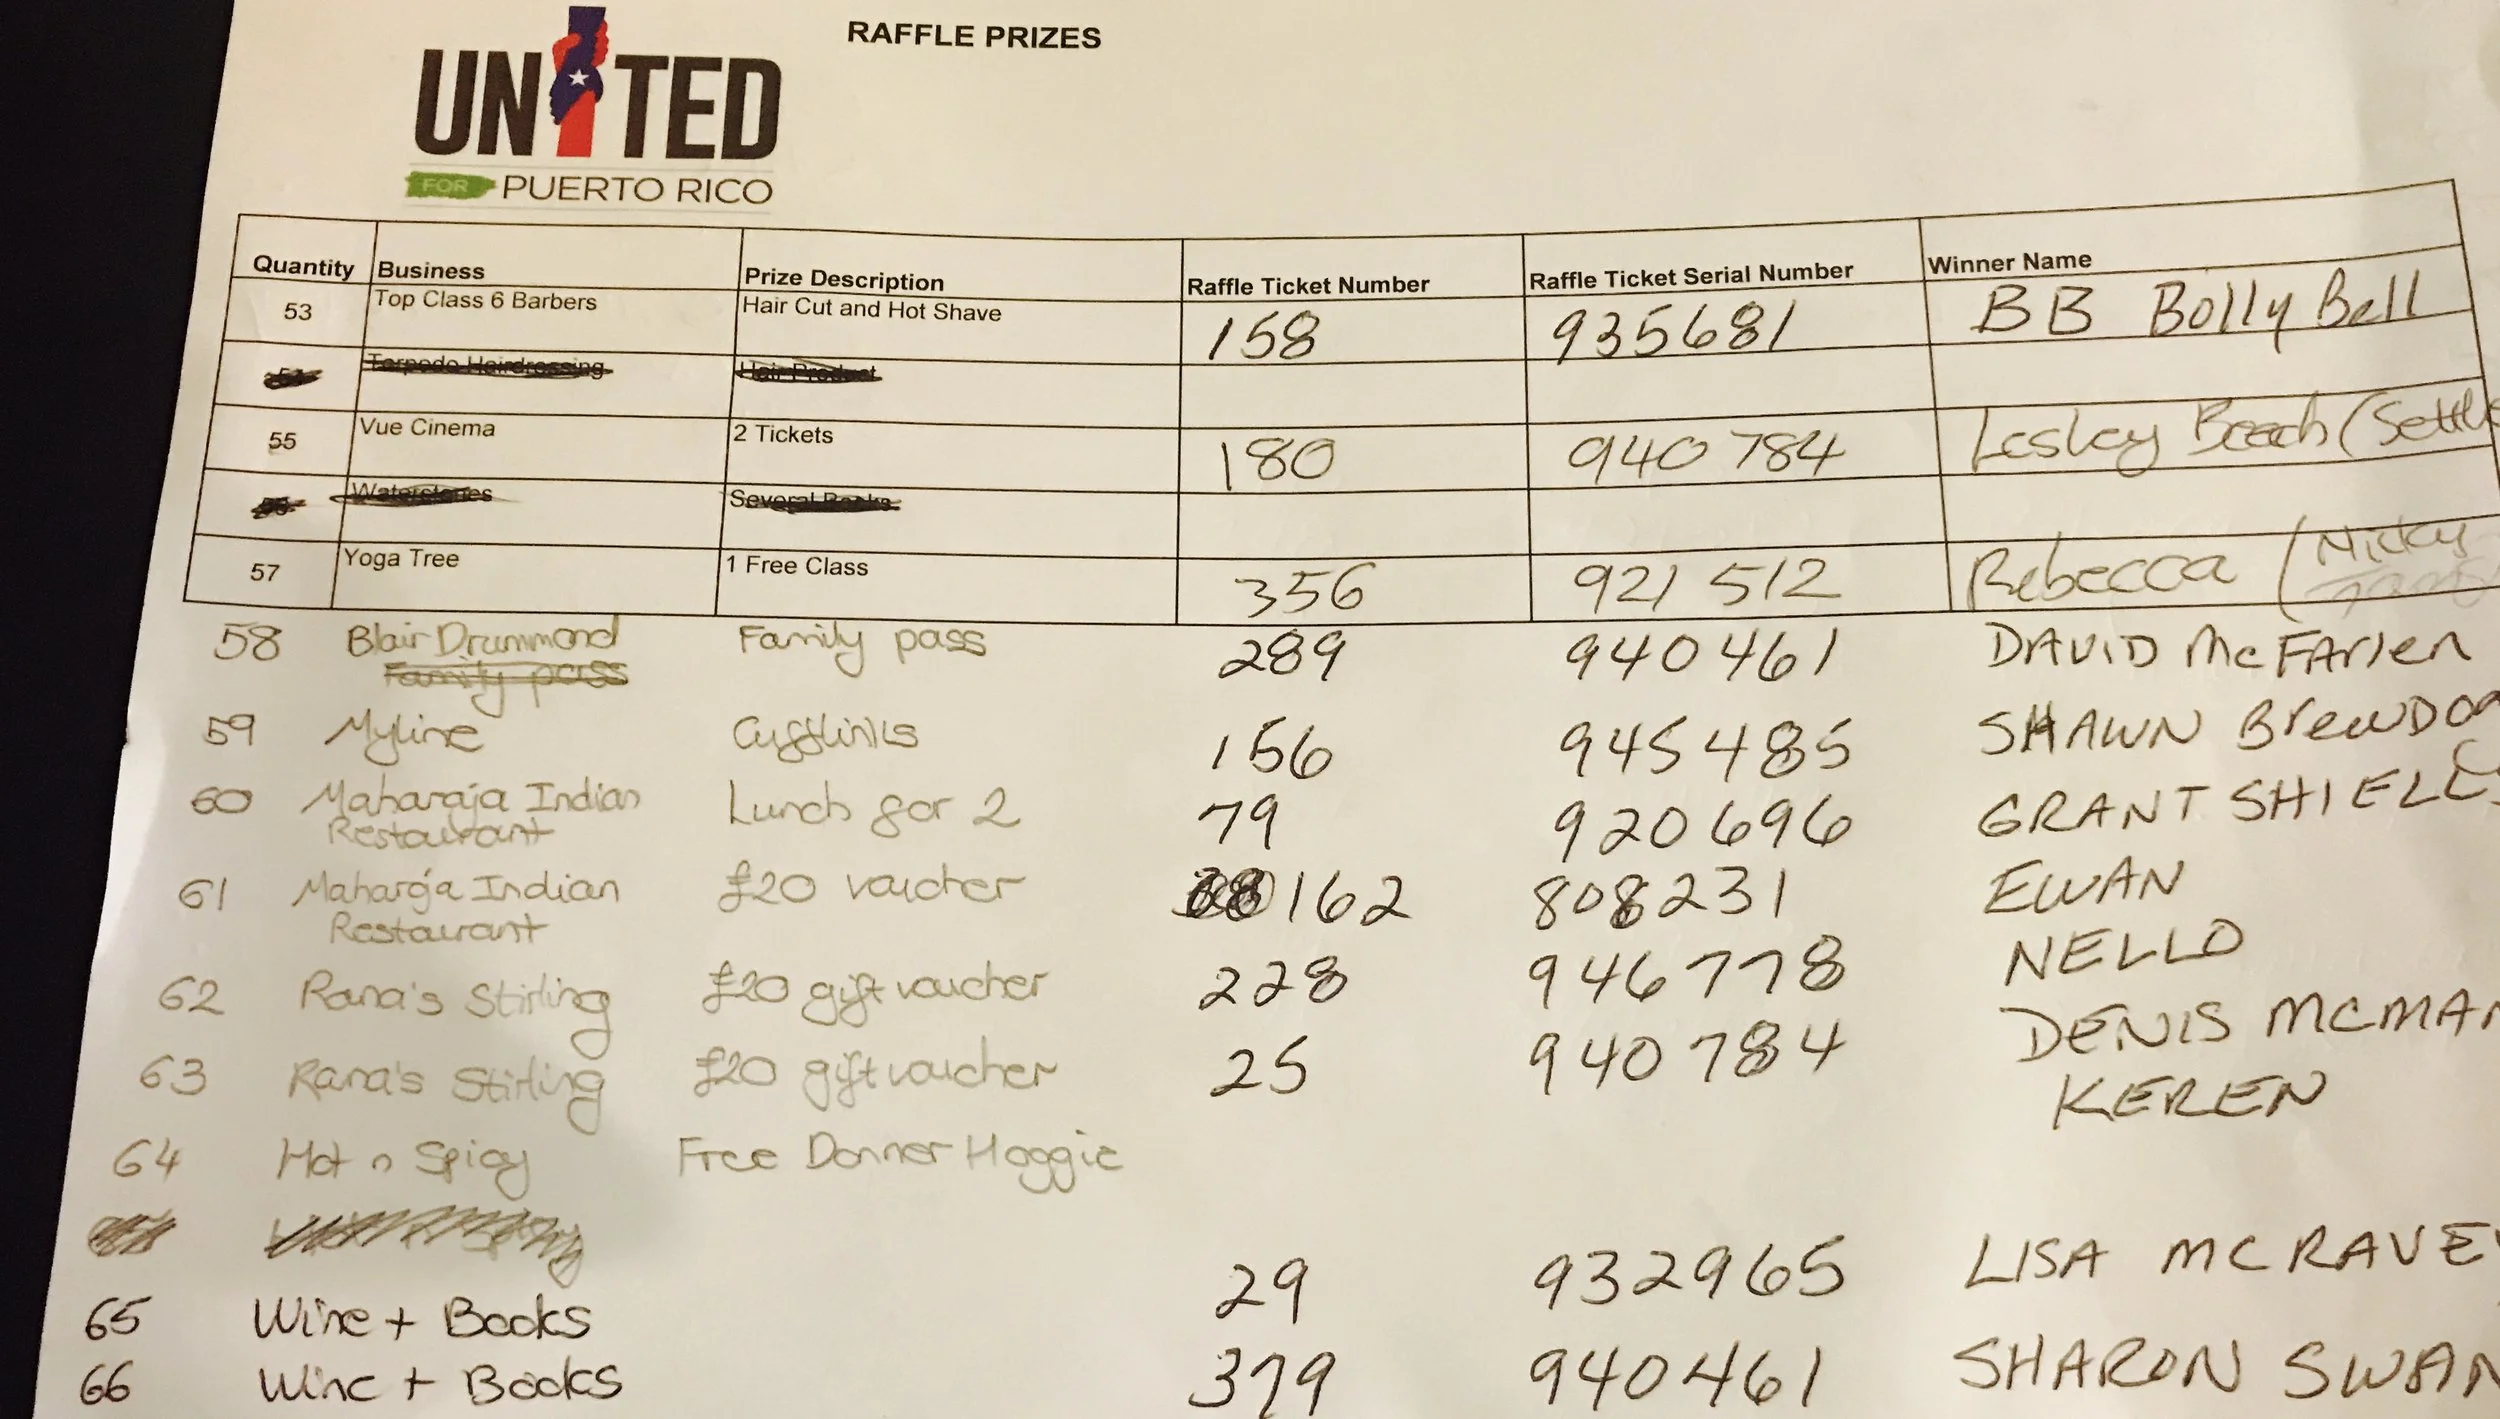 RAFFLE PRIZES
UNITED
FOR PUERTO RICO
Quantity Business Prize Description Raffle Ticket Number Raffle Ticket Serial Number Winner Name
53 Top Class 6 Barbers Hair Cut and Hot Shave 158 935681 BB Bolly Bell
Torpedo Hairdressing Hair Product
55 Vue Cinema 2 Tickets 180 940784 Lesley Beech (Settle
Waterstones Several Books
57 Yoga Tree 1 Free Class 356 921512 Rebecca (Nicky
58 Blair Drummond Family pass 289 940461 DAVID McFArlen
Family pass
59 Myline Cufflinks 156 945485 SHAWN BrewDog
60 Maharaja Indian Lunch for 2 79 920696 GRANT SHIELLS
Restaurant
61 Maharaja Indian £20 voucher 162 808231 EWAN
Restaurant
62 Rana's Stirling £20 gift voucher 228 946778 NELLO
63 Rana's Stirling £20 gift voucher 25 940784 DENIS MCMAN
KEREN
64 Hot n Spicy Free Donner Hoggie
29 932965 LISA MCRAVEY
65 Wine + Books
66 Wine + Books 379 940461 SHARON SWAN